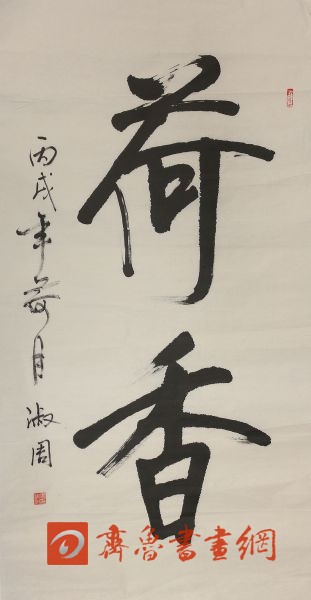 荷香
丙戌年荷月
淑周
齊魯書畫網